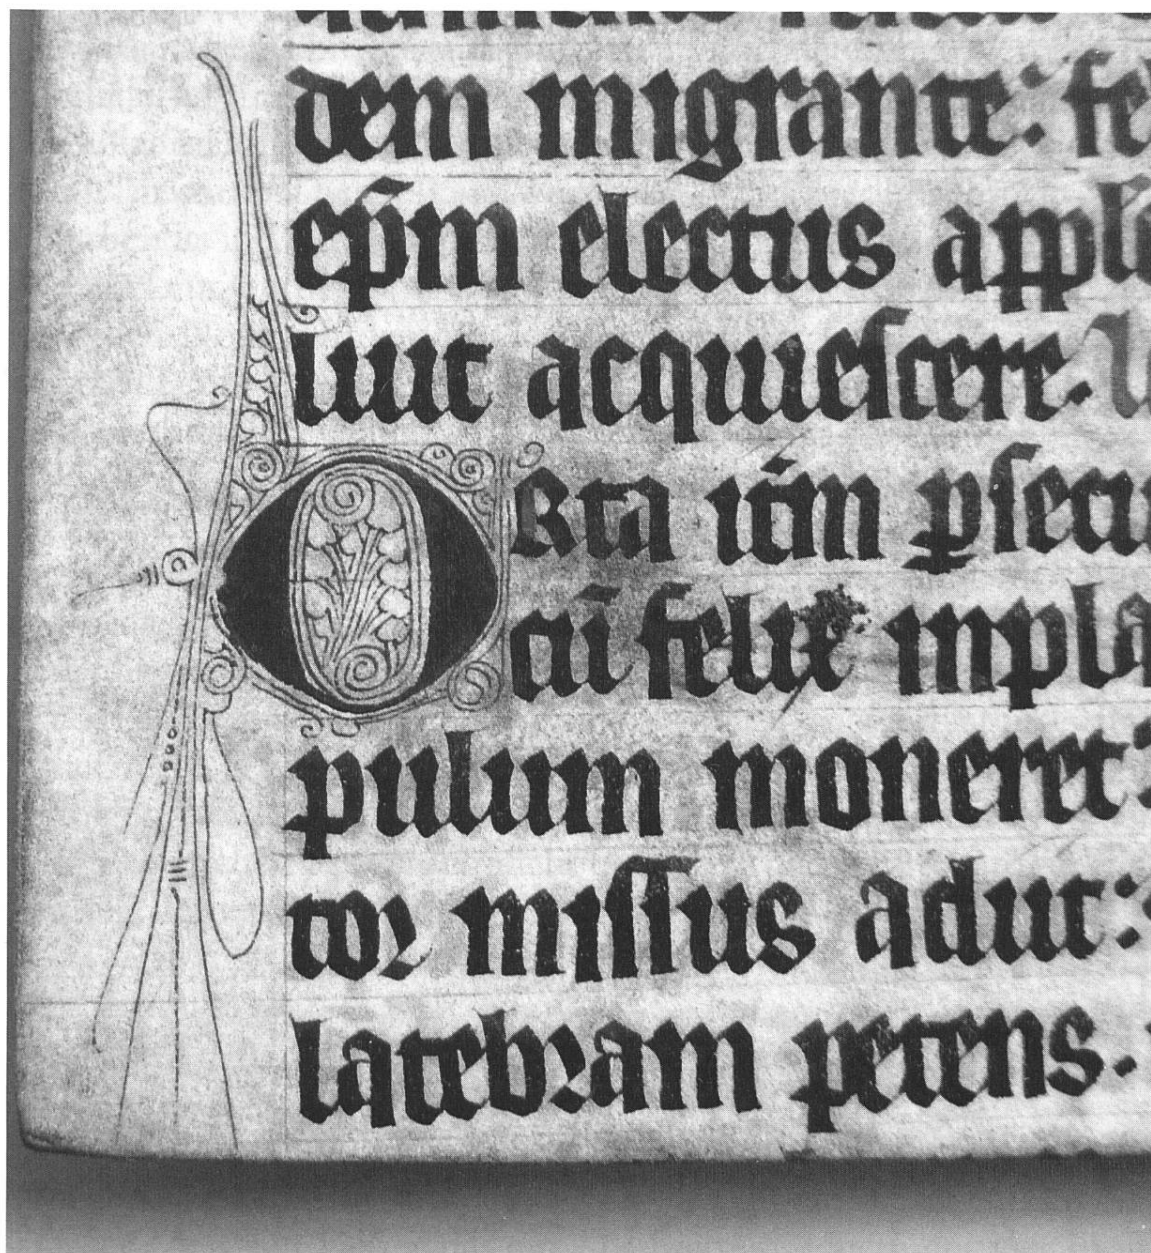 dem migrante: fe
ep̄m electus appli
luit acquiescere.
ORta itm̄ psecu
cui felix inpla
pulum moneret:
tor missus aduit:
latebram petens.